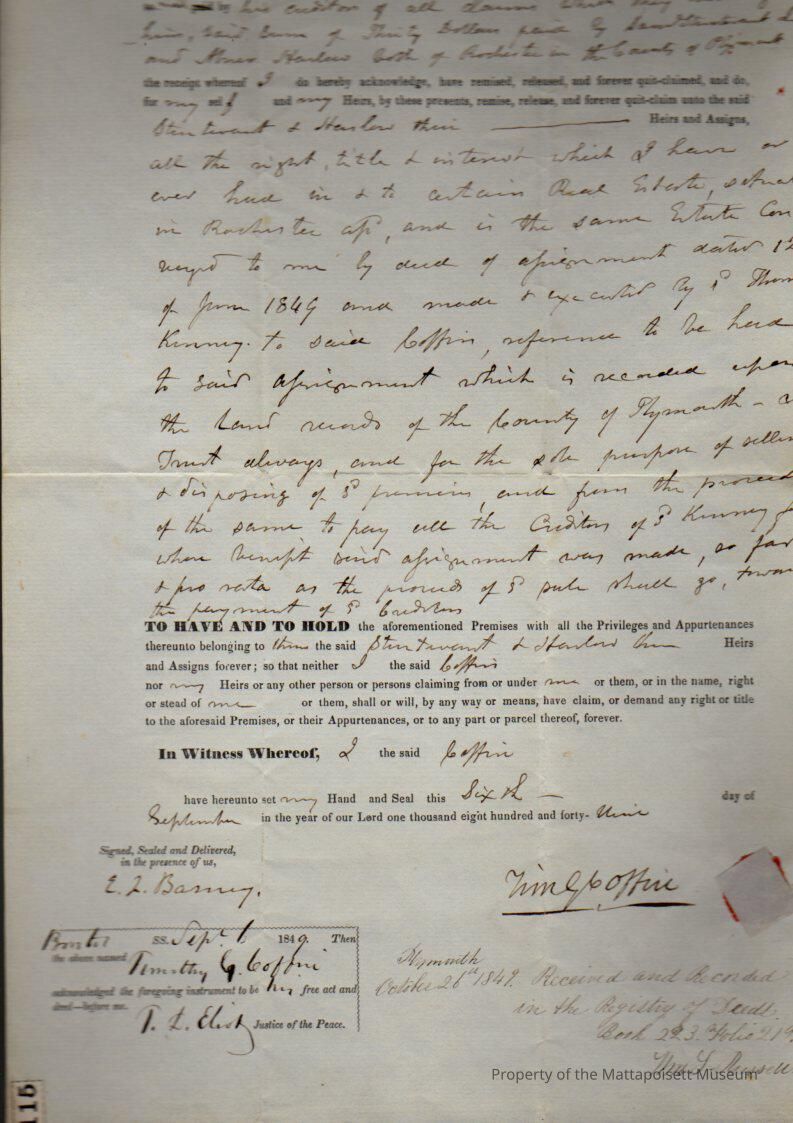 his creditors of all claims which they
him, said sum of Thirty Dollars paid by Sturtevant
and Abner Harlow both of Rochester in the County of Plymouth
the receipt whereof I do hereby acknowledge, have remised, released, and forever quit-claimed, and do,
for my self and my Heirs, by these presents, remise, release, and forever quit-claim unto the said
Sturtevant & Harlow their Heirs and Assigns,
all the right, title & interest which I have or
ever had in & to certain Real Estate,
in Rochester afs, and is the same Estate Con
veyed to me by deed of assignment dated 12
of June 1849 and made & executed by sd Thom
Kinney. to said Coffin, reference to be had
to said assignment which is recorded upon
the Land records of the County of Plymouth -
Trust always, and for the sole purpose of sellin
& disposing of sd premises, and from the proceed
of the same to pay all the Creditors of sd Kinney for
whose benefit said assignment was made, so far
& pro rata as the proceeds of sd sale shall go, towar
the payment of sd Creditors
TO HAVE AND TO HOLD the aforementioned Premises with all the Privileges and Appurtenances
thereunto belonging to them the said Sturtevant & Harlow their Heirs
and Assigns forever; so that neither I the said Coffin
nor my Heirs or any other person or persons claiming from or under me or them, or in the name, right
or stead of me or them, shall or will, by any way or means, have claim, or demand any right or title
to the aforesaid Premises, or their Appurtenances, or to any part or parcel thereof, forever.
In Witness Whereof, I the said Coffin
have hereunto set my Hand and Seal this Sixth day of
September in the year of our Lord one thousand eight hundred and forty- Nine
Signed, Sealed and Delivered,
in the presence of us,
E. L. Barney.
Tim G Coffin
Bristol SS. Sept. 6 1849. Then
the above named Timothy G. Coffin
acknowledged the foregoing instrument to be his free act and
deed—before me.
T. D. Eliot Justice of the Peace.
Plymouth
October 26th 1849. Received and Recorded
in the Registry of Deeds.
Book 233. Folio 219
Wm S. Russell
Property of the Mattapoisett Museum
115